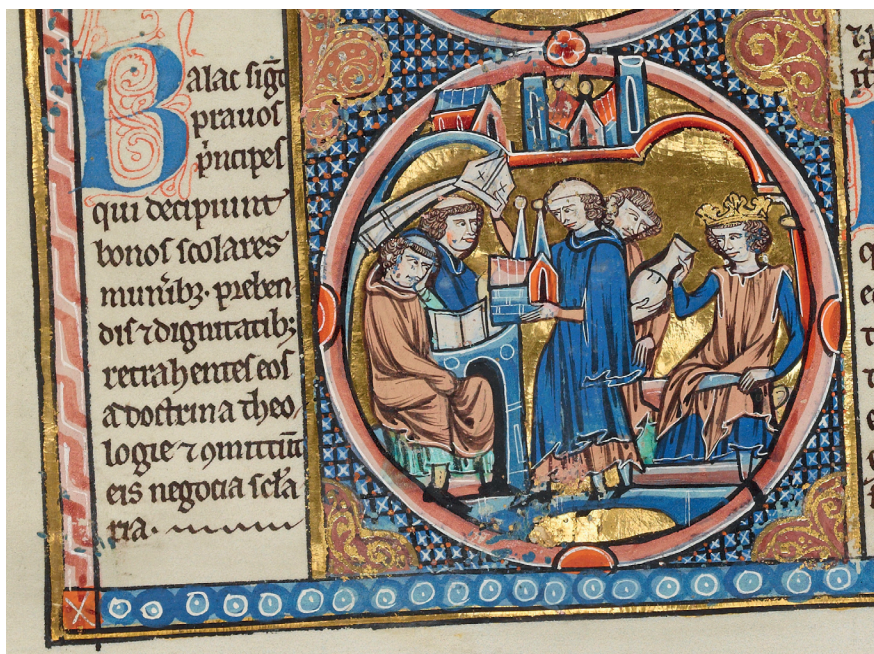 Balac sigͭ
prauos
p̾ncipes
qui decipiunt
bonos scolares
munĩbꝫ· preben
dis ⁊ dignitatibꝫ
retrahentes eos
a doctrina theo
logie ⁊ ꝯmittũt
eis negocia scl̾a
ria·